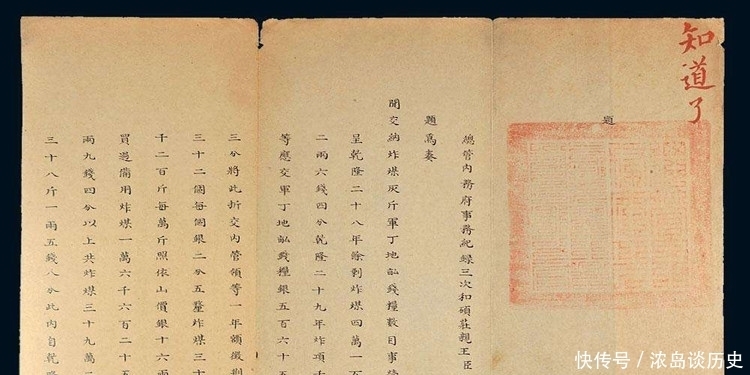 知道了
題
總管內務府事務紀錄三次和碩莊親王臣
題為奏
聞交納炸煤灰斤軍丁地畝錢糧數目事
呈乾隆二十八年餘剩炸煤四萬一百
二兩六錢四分乾隆二十九年炸
等應交軍丁地畝錢糧銀五百六十五
三分將此折交內管領等一年額徵荆
三十二個每個銀二分五釐炸煤三十
千二百斤每萬斤照依山價銀十六兩
買過備用炸煤一萬六千六百二十五
兩九錢四分以上共炸煤三十九萬二
三十八斤一兩五錢八分此內自乾隆
快传号/浓岛谈历史